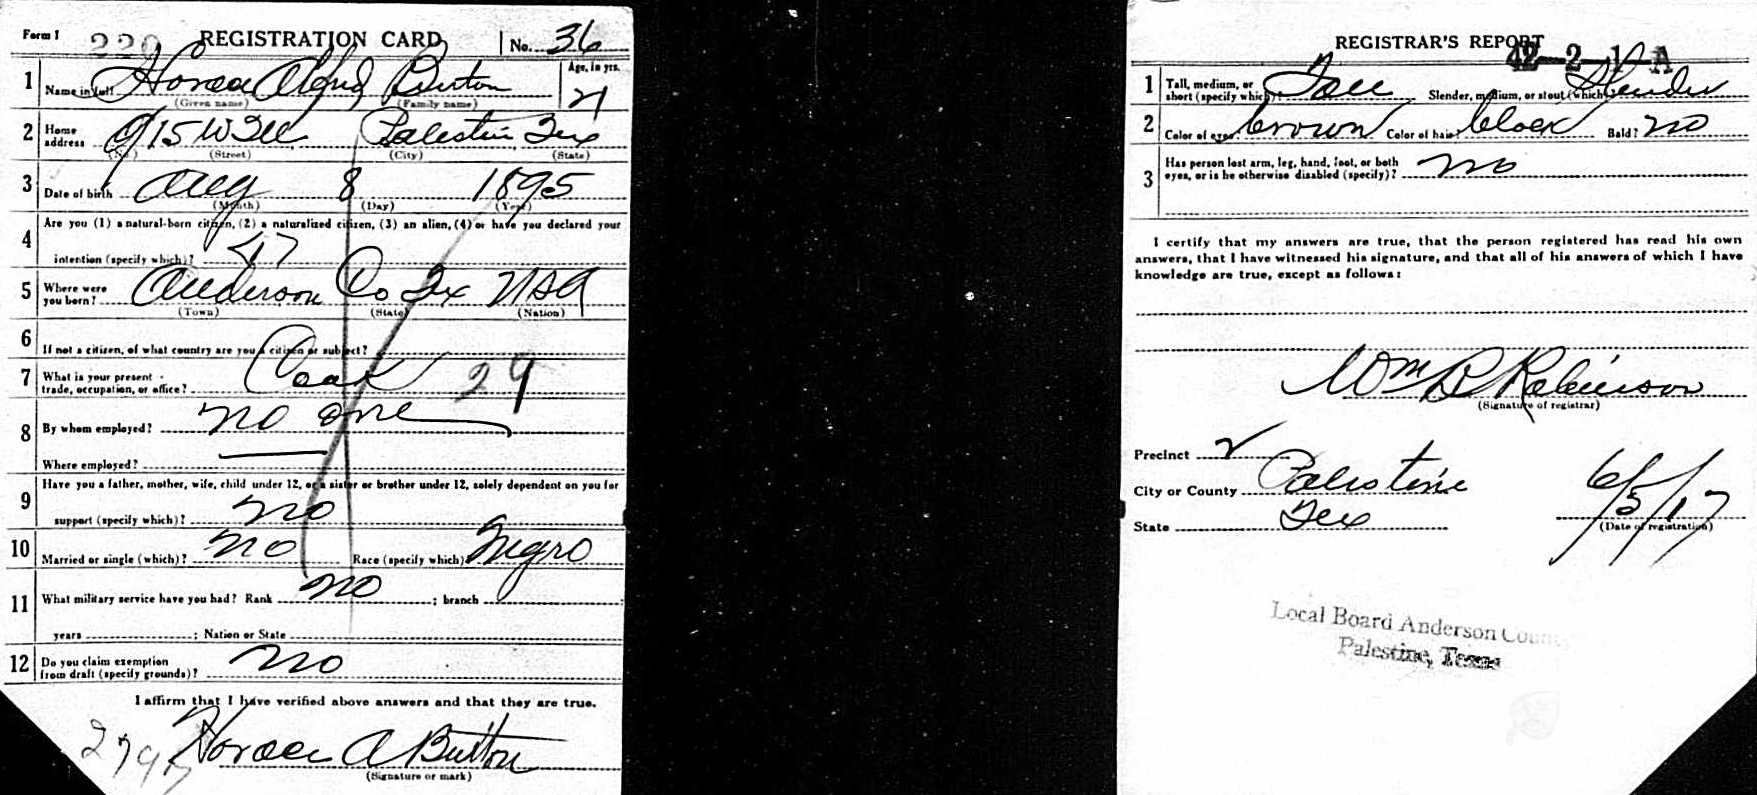 Form 1 229 REGISTRATION CARD No. 36
1 Name in full Horace Alfred Burton Age, in yrs. 21
(Given name) (Family name)
2 Home address 915 W (No.) (Street) Palestine, Tex (City) (State)
3 Date of birth Aug 8 1895
(Month) (Day) (Year)
4 Are you (1) a natural-born citizen, (2) a naturalized citizen, (3) an alien, (4) or have you declared your
intention (specify which)?
5 Where were you born? Anderson Co Tex USA
(Town) (State) (Nation)
6 If not a citizen, of what country are you a citizen or subject?
7 What is your present trade, occupation, or office? Cook 29
8 By whom employed? no one
Where employed?
9 Have you a father, mother, wife, child under 12, or a sister or brother under 12, solely dependent on you for
support (specify which)? no
10 Married or single (which)? no Race (specify which)? Negro
11 What military service have you had? Rank no ; branch
years ; Nation or State
12 Do you claim exemption from draft (specify grounds)? no
I affirm that I have verified above answers and that they are true.
Horace A Burton
(Signature or mark)
REGISTRAR'S REPORT
42-2-1-A
1 Tall, medium, or short (specify which)? Tall Slender, medium, or stout (which)? Slender
2 Color of eyes brown Color of hair? black Bald? no
3 Has person lost arm, leg, hand, foot, or both
eyes, or is he otherwise disabled (specify)? no
I certify that my answers are true, that the person registered has read his own
answers, that I have witnessed his signature, and that all of his answers of which I have
knowledge are true, except as follows:
Wm B Robinson
(Signature of registrar)
Precinct 2
City or County Palestine
State Tex 6/5/17
(Date of registration)
Local Board Anderson County
Palestine, Texas